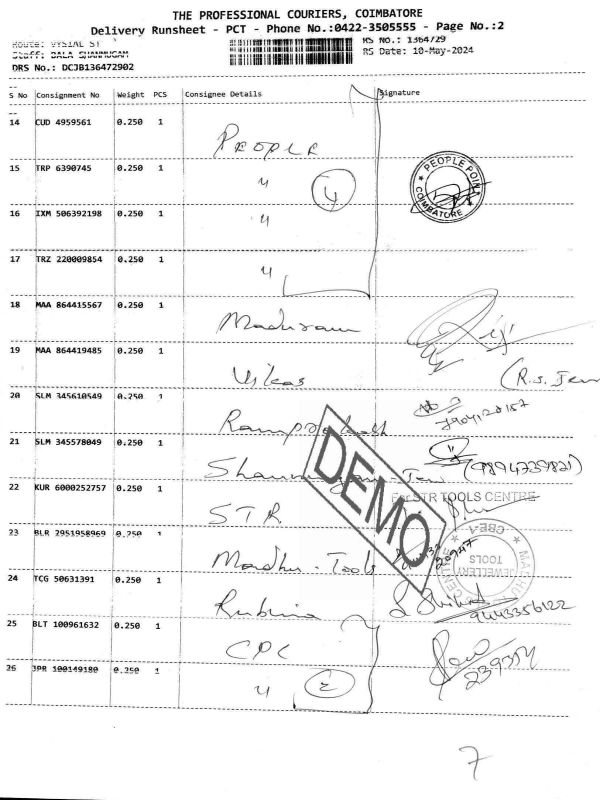 THE PROFESSIONAL COURIERS, COIMBATORE
Delivery Runsheet - PCT - Phone No.:0422-3505555 - Page No.:2
Route: VYSIAL ST
RS No.: 1364729
Staff: BALA SHANMUGAM
RS Date: 10-May-2024
DRS No.: DCJB136472902
S No Consignment No Weight PCS Consignee Details Signature
14 CUD 4959561 0.250 1 PEOPLE
15 TRP 6390745 0.250 1 " 4
PEOPLE POINT COIMBATORE
16 IXM 506392198 0.250 1 "
17 TRZ 220009854 0.250 1 "
18 MAA 864415567 0.250 1 Maduram
19 MAA 864419485 0.250 1 Vikas (R.S. Jew
20 SLM 345610549 0.250 1
21 SLM 345578049 0.250 1 (9894739821)
22 KUR 6000252757 0.250 1 STR For STR TOOLS CENTRE
23 BLR 2951958969 0.250 1 Madhu - Tools
JEWELLERY TOOLS CBE-1
24 TCG 50631391 0.250 1 Rubina 9443356122
25 BLT 100961632 0.250 1 CPC
26 JPR 100149180 0.250 1 " 2 239354
DEMO
7